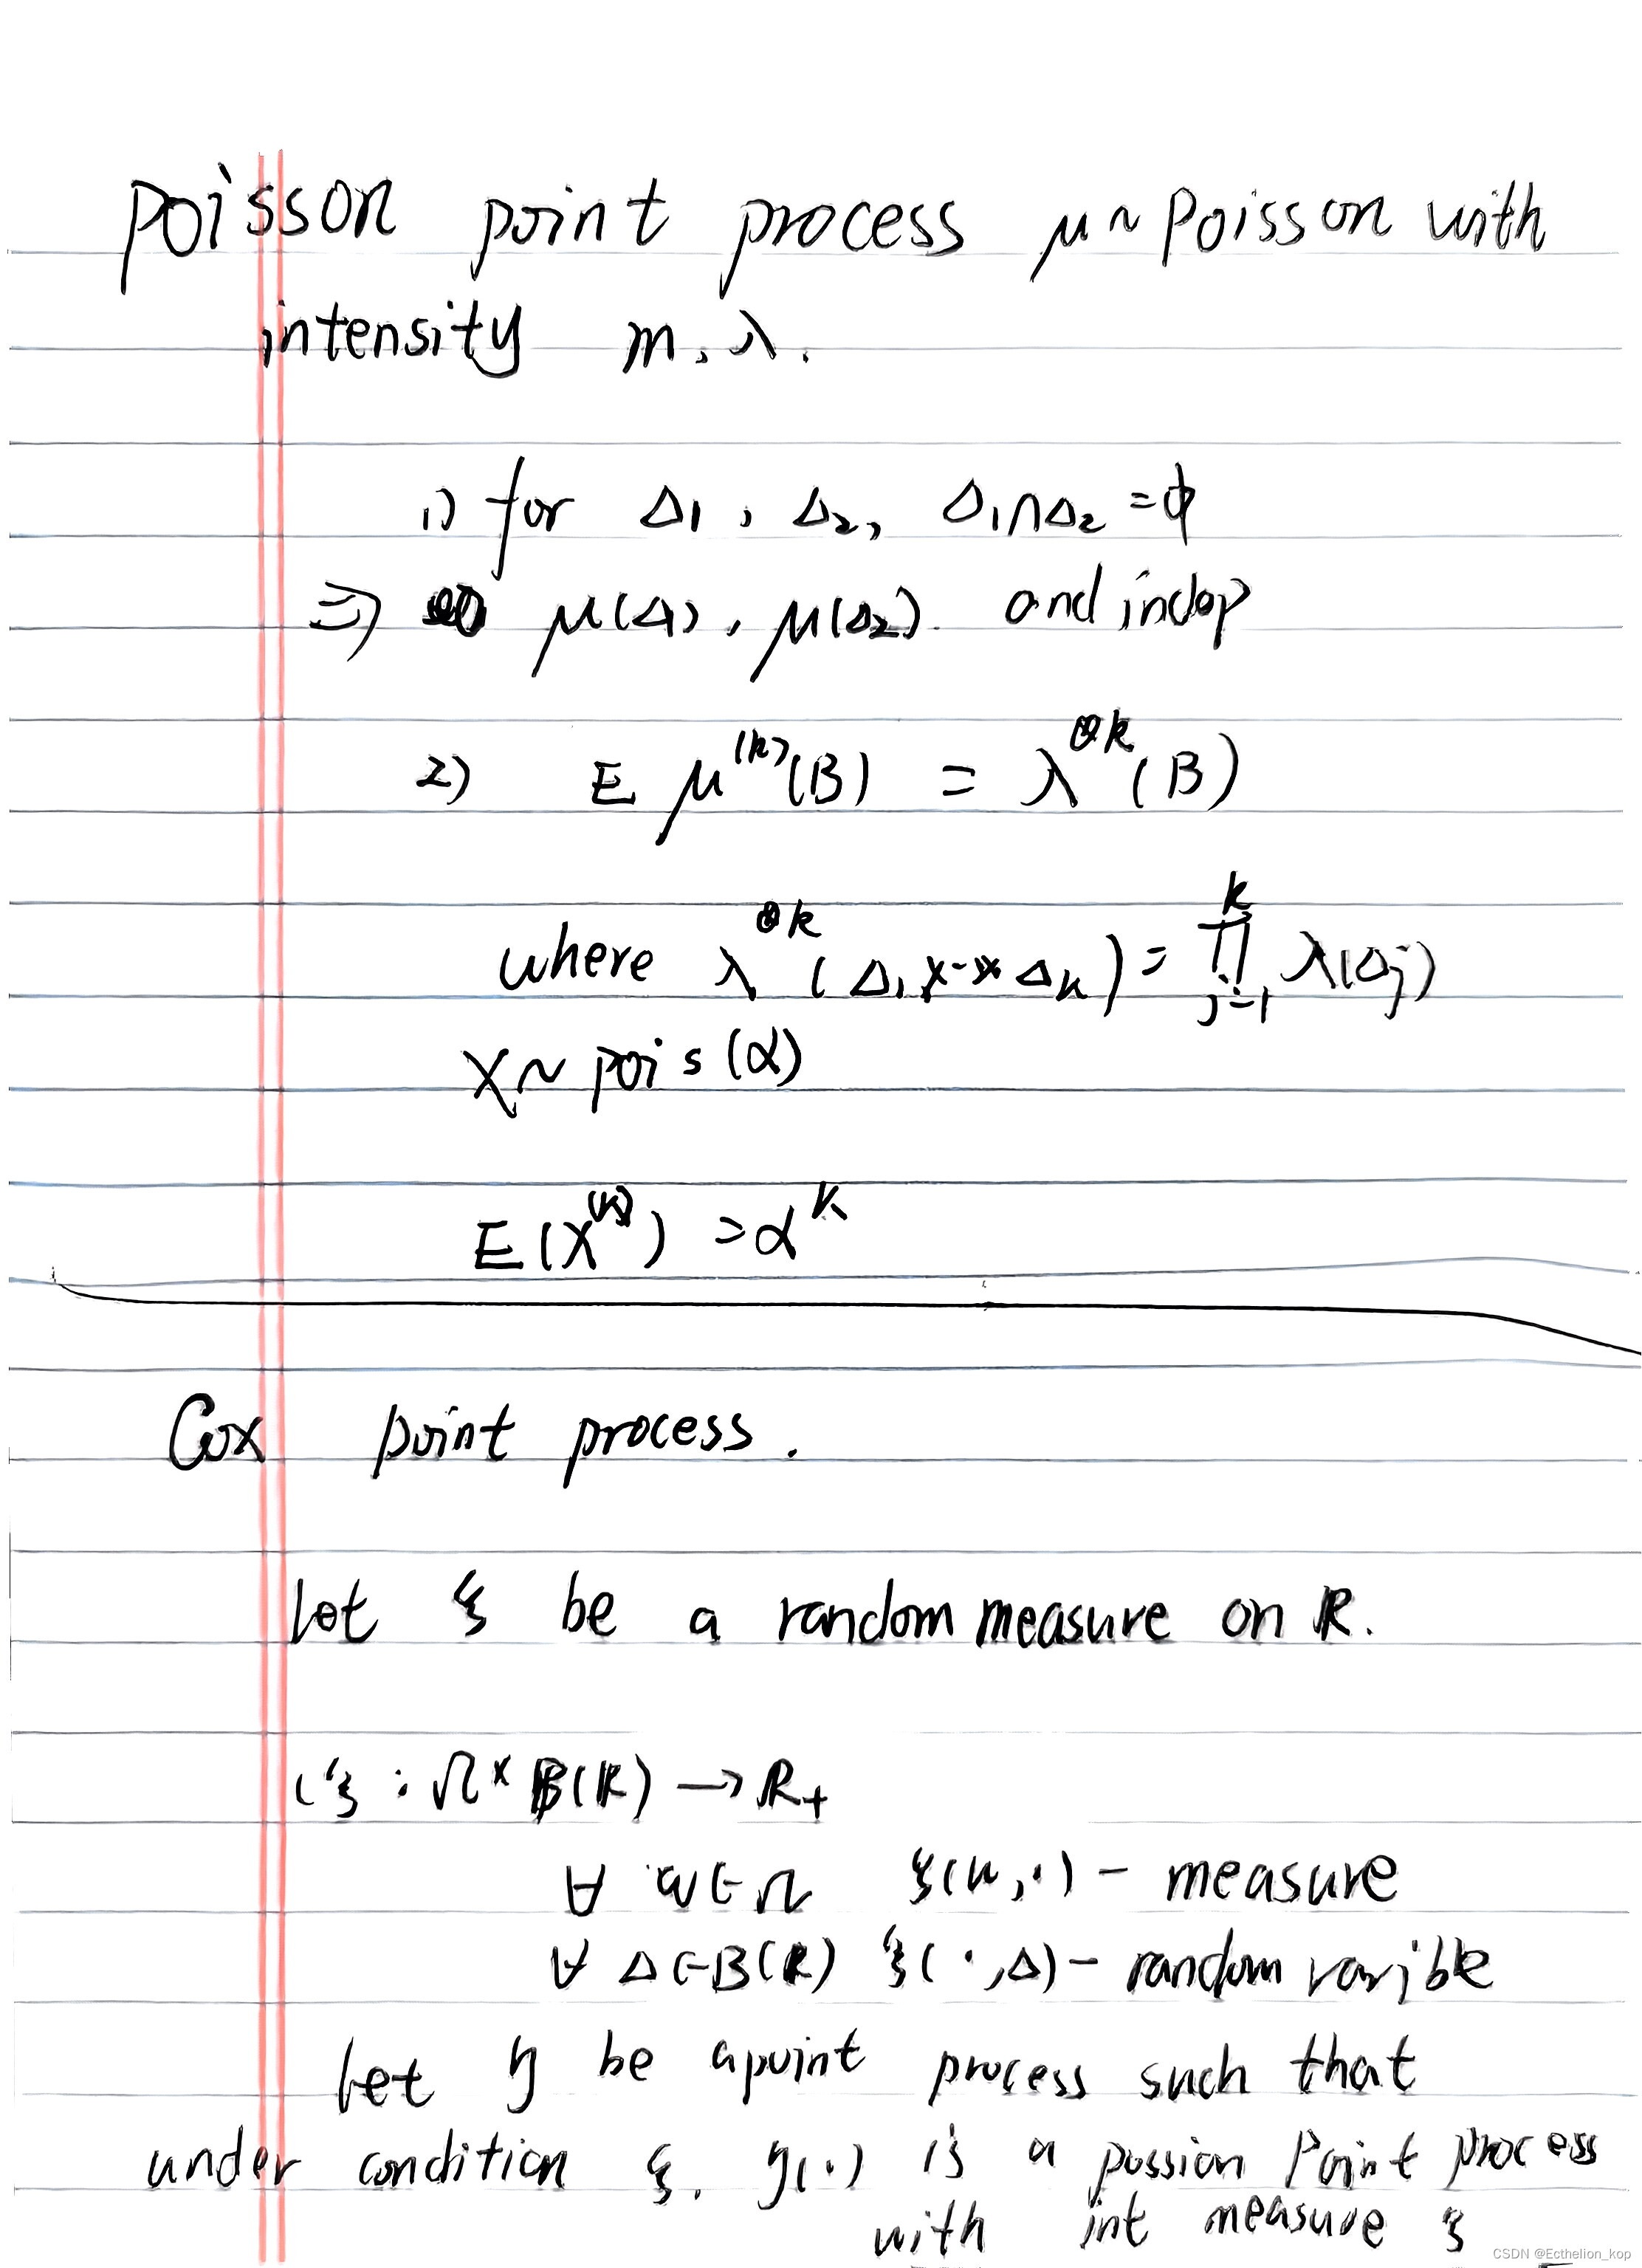 Poisson point process μ ~ Poisson with
intensity m. λ.
1) for Δ1, Δ2, Δ1∩Δ2 = ϕ
⇒ μ(Δ1), μ(Δ2). and indep
2) E μ^(k)(B) = λ^⊗k (B)
where λ^⊗k (Δ1 x-x Δk) = ∏_{j=1}^{k} λ(Δj)
X ~ pois(α)
E(X^(k)) = α^k
Cox point process.
let ξ be a random measure on ℝ.
(ξ : Ω × B(ℝ) → ℝ+
∀ ω ∈ Ω ξ(ω, ·) - measure
∀ Δ ∈ B(ℝ) ξ(·, Δ) - random varible
let η be a point process such that
under condition ξ. η(·) is a possion Point process
with int measure ξ
CSDN @Ecthelion_kop